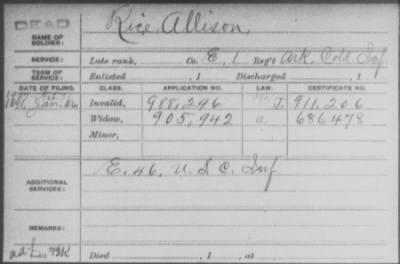 DEAD
NAME OF SOLDIER: Rice, Allison,
SERVICE: Late rank, Co. E, 1 Reg't Ark. Cold Inf.
TERM OF SERVICE: Enlisted , 1 Discharged , 1
DATE OF FILING. CLASS. APPLICATION NO. LAW. CERTIFICATE NO.
Invalid, 988,296 J. 911,206
Widow, 905,942 a. 686478
Minor,
ADDITIONAL SERVICES: E. 46, U. S. C. Inf
REMARKS:
Died , 1 , at